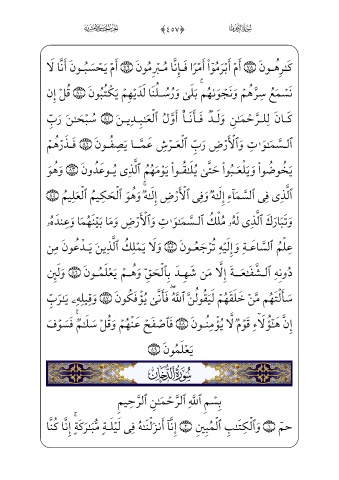 سُورَةُ الزُّخْرُفِ ﴿٤٥٧﴾ الجُزْءُ الخَامِسُ وَالعِشْرُونَ
كَٰرِهُونَ ۝٧٨ أَمْ أَبْرَمُوٓا۟ أَمْرًۭا فَإِنَّا مُبْرِمُونَ ۝٧٩ أَمْ يَحْسَبُونَ أَنَّا لَا
نَسْمَعُ سِرَّهُمْ وَنَجْوَىٰهُم ۚ بَلَىٰ وَرُسُلُنَا لَدَيْهِمْ يَكْتُبُونَ ۝٨٠ قُلْ إِن
كَانَ لِلرَّحْمَٰنِ وَلَدٌۭ فَأَنَا۠ أَوَّلُ ٱلْعَٰبِدِينَ ۝٨١ سُبْحَٰنَ رَبِّ
ٱلسَّمَٰوَٰتِ وَٱلْأَرْضِ رَبِّ ٱلْعَرْشِ عَمَّا يَصِفُونَ ۝٨٢ فَذَرْهُمْ
يَخُوضُوا۟ وَيَلْعَبُوا۟ حَتَّىٰ يُلَٰقُوا۟ يَوْمَهُمُ ٱلَّذِى يُوعَدُونَ ۝٨٣ وَهُوَ
ٱلَّذِى فِى ٱلسَّمَآءِ إِلَٰهٌۭ وَفِى ٱلْأَرْضِ إِلَٰهٌۭ ۚ وَهُوَ ٱلْحَكِيمُ ٱلْعَلِيمُ ۝٨٤
وَتَبَارَكَ ٱلَّذِى لَهُۥ مُلْكُ ٱلسَّمَٰوَٰتِ وَٱلْأَرْضِ وَمَا بَيْنَهُمَا وَعِندَهُۥ
عِلْمُ ٱلسَّاعَةِ وَإِلَيْهِ تُرْجَعُونَ ۝٨٥ وَلَا يَمْلِكُ ٱلَّذِينَ يَدْعُونَ مِن
دُونِهِ ٱلشَّفَٰعَةَ إِلَّا مَن شَهِدَ بِٱلْحَقِّ وَهُمْ يَعْلَمُونَ ۝٨٦ وَلَئِن
سَأَلْتَهُم مَّنْ خَلَقَهُمْ لَيَقُولُنَّ ٱللَّهُ ۖ فَأَنَّىٰ يُؤْفَكُونَ ۝٨٧ وَقِيلِهِۦ يَٰرَبِّ
إِنَّ هَٰٓؤُلَآءِ قَوْمٌۭ لَّا يُؤْمِنُونَ ۝٨٨ فَٱصْفَحْ عَنْهُمْ وَقُلْ سَلَٰمٌۭ ۚ فَسَوْفَ
يَعْلَمُونَ ۝٨٩
سُورَةُ الدُّخَانِ
بِسْمِ ٱللَّهِ ٱلرَّحْمَٰنِ ٱلرَّحِيمِ
حمٓ ۝١ وَٱلْكِتَٰبِ ٱلْمُبِينِ ۝٢ إِنَّآ أَنزَلْنَٰهُ فِى لَيْلَةٍۢ مُّبَٰرَكَةٍ ۚ إِنَّا كُنَّا